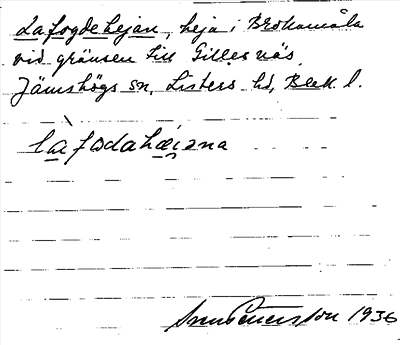 Lafogdehejan, heja i Brokamåla
vid gränsen till Gillesnäs,
Jämshögs sn, Listers hd, Blek. l.
làfodahæjǝna
Sven Petersson 1936